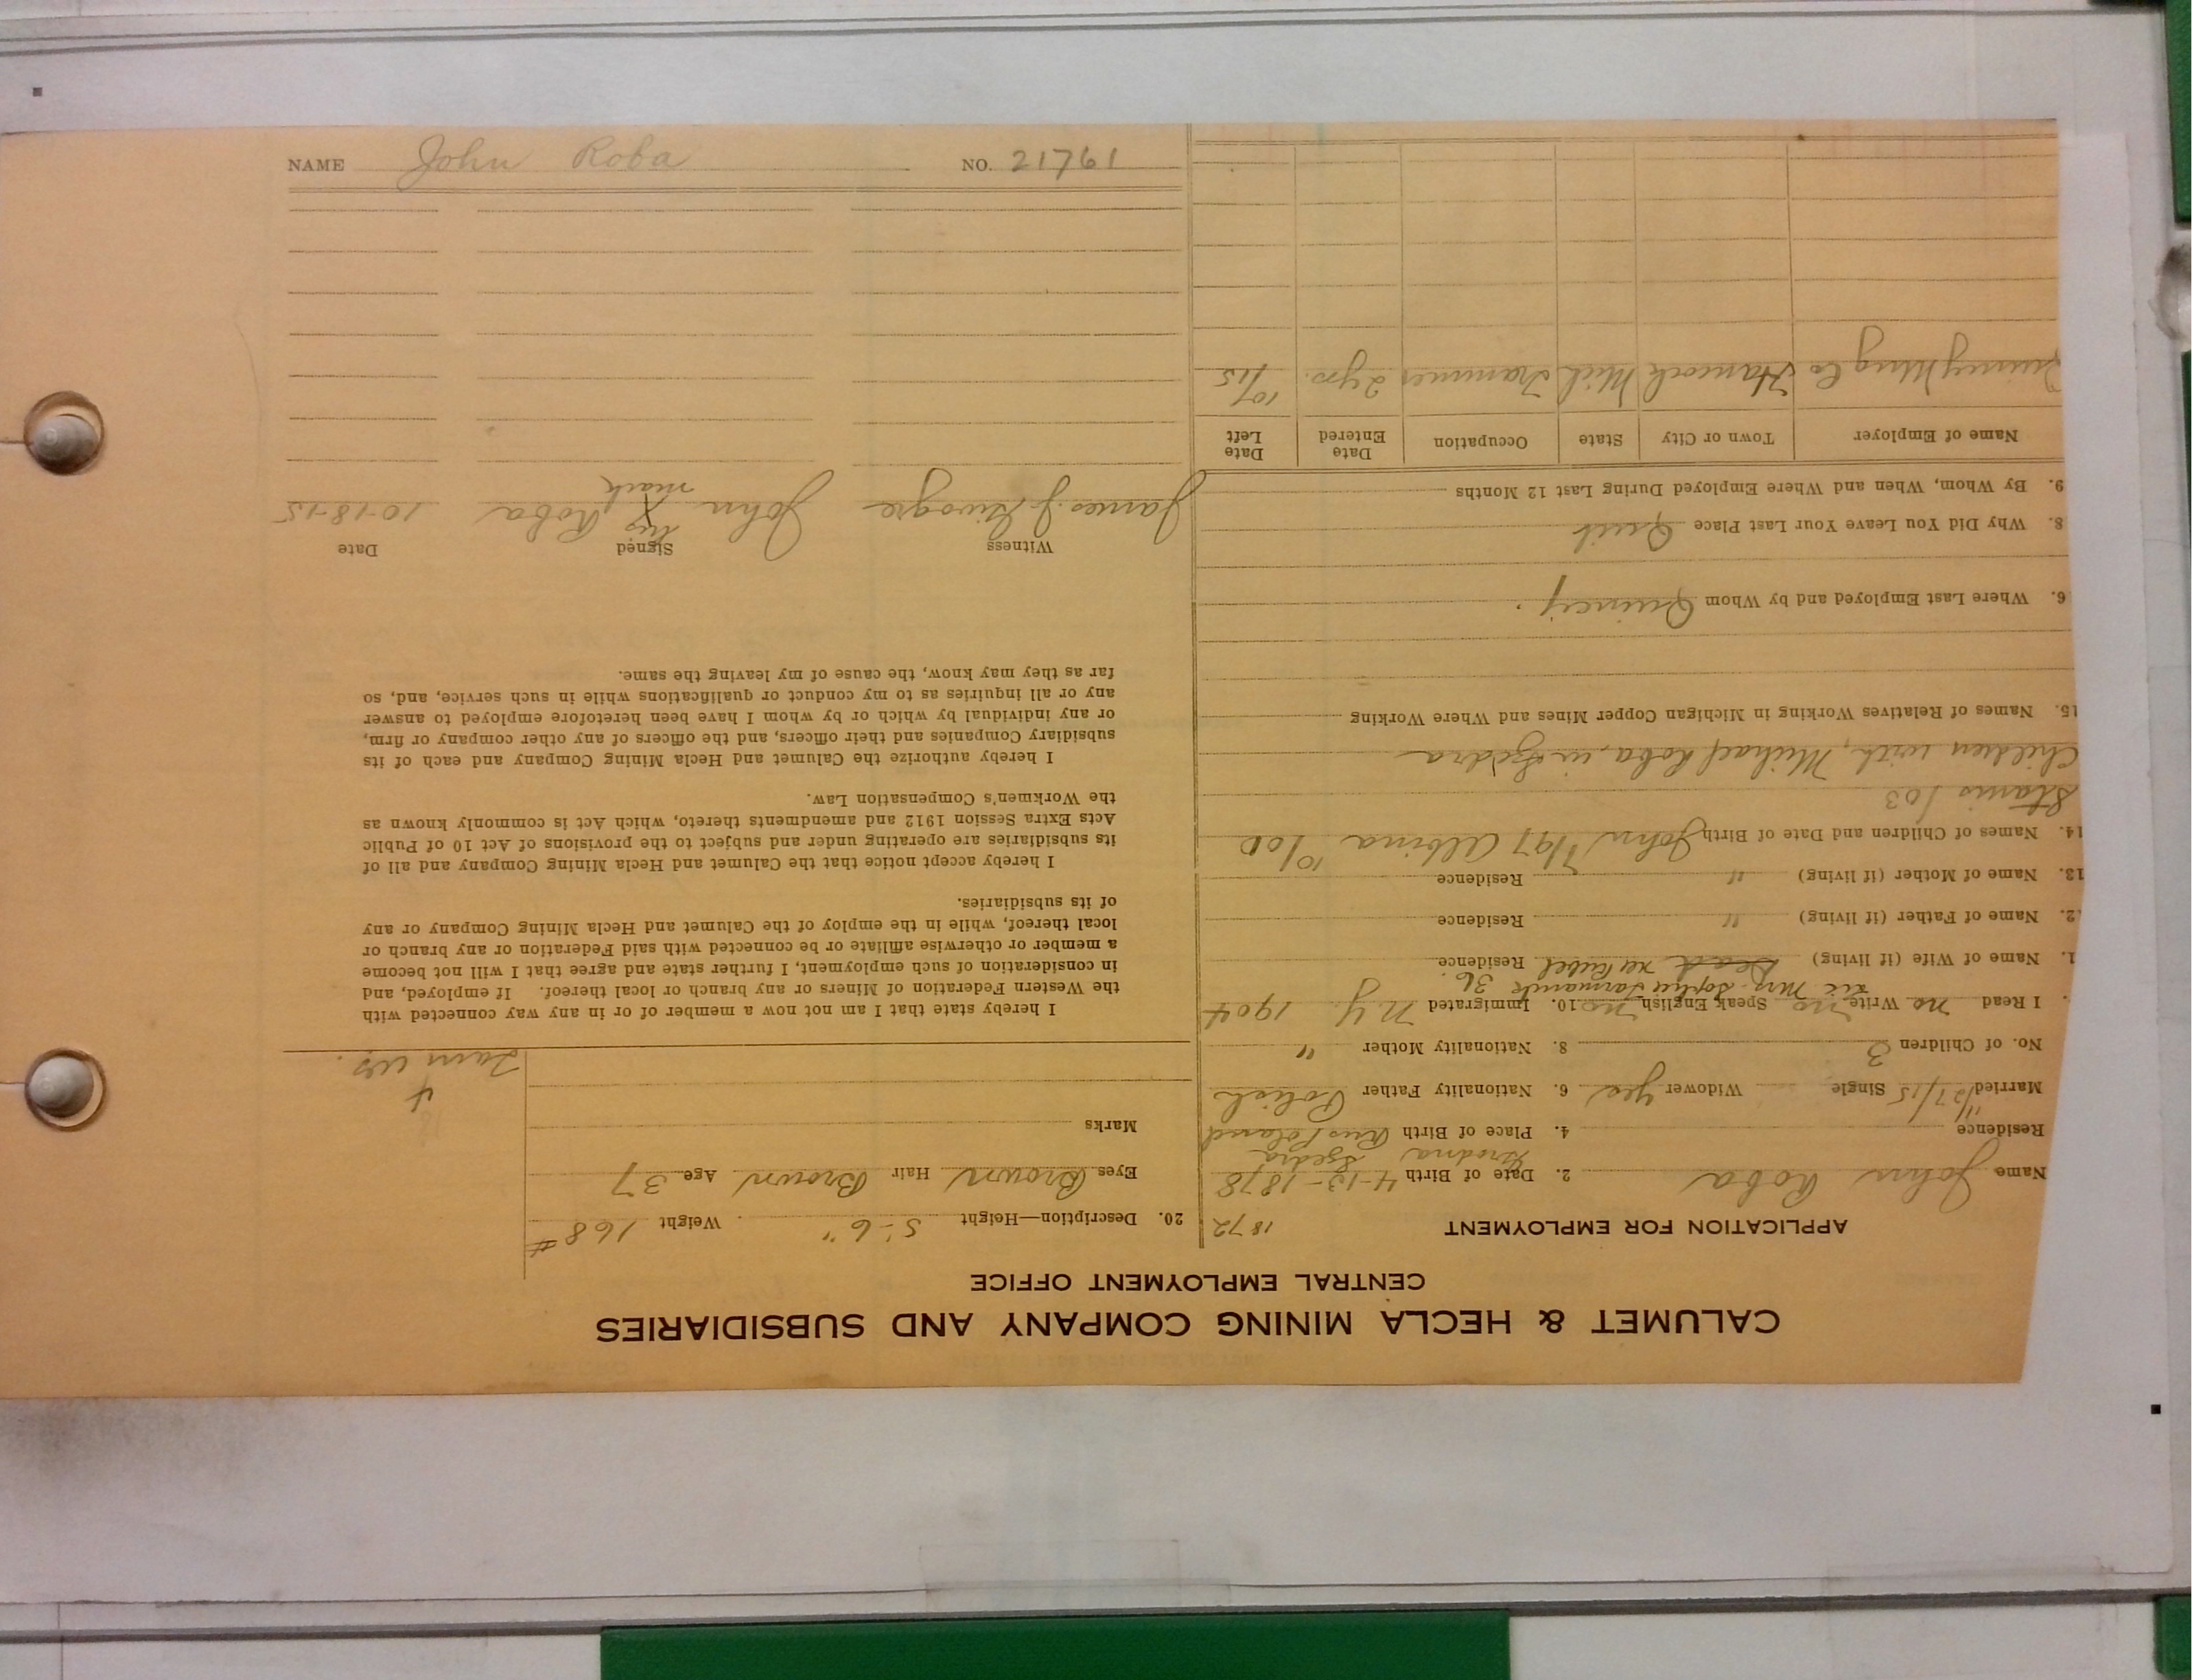 NAME John Roba NO. 21761
CALUMET & HECLA MINING COMPANY AND SUBSIDIARIES
CENTRAL EMPLOYMENT OFFICE
APPLICATION FOR EMPLOYMENT 1872
Name John Roba 2. Date of Birth 4-13-1878
Grodna Szedra
Residence 4. Place of Birth Rus Poland
Married 11/27/15 Single Widower yes 6. Nationality Father Polish
No. of Children 3 8. Nationality Mother "
I Read no Write no Speak English no 10. Immigrated N.Y. 1904
Mrs. Sophie 36
1. Name of Wife (if living) Dead Residence
2. Name of Father (if living) " Residence
13. Name of Mother (if living) " Residence
14. Names of Children and Date of Birth John 7/97 Albina 10/00
Stanis /03
Children with, Michael Roba, in Szedra
15. Names of Relatives Working in Michigan Copper Mines and Where Working
6. Where Last Employed and by Whom Quincy.
8. Why Did You Leave Your Last Place Quit
9. By Whom, When and Where Employed During Last 12 Months
Name of Employer Town or City State Occupation Date Entered Date Left
Quincy Mng Co Hancock Mich Trammer 2 yrs. 10/15
20. Description—Height 5'-6" Weight 168#
Eyes Brown Hair Brown Age 37
Marks
4
I hereby state that I am not now a member of or in any way connected with
the Western Federation of Miners or any branch or local thereof. If employed, and
in consideration of such employment, I further state and agree that I will not become
a member or otherwise affiliate or be connected with said Federation or any branch or
local thereof, while in the employ of the Calumet and Hecla Mining Company or any
of its subsidiaries.
I hereby accept notice that the Calumet and Hecla Mining Company and all of
its subsidiaries are operating under and subject to the provisions of Act 10 of Public
Acts Extra Session 1912 and amendments thereto, which Act is commonly known as
the Workmen's Compensation Law.
I hereby authorize the Calumet and Hecla Mining Company and each of its
subsidiary Companies and their officers, and the officers of any other company or firm,
or any individual by which or by whom I have been heretofore employed to answer
any or all inquiries as to my conduct or qualifications while in such service, and, so
far as they may know, the cause of my leaving the same.
Witness Signed Date
his
James J. John X Roba 10-18-15
mark